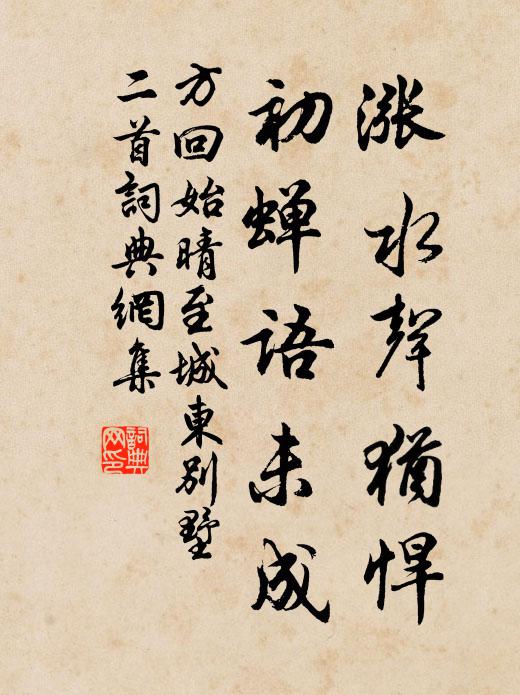 漲水聲猶悍
初蝉語未成
方回始晴至城東別墅
二首詞典網集
詞典
网印